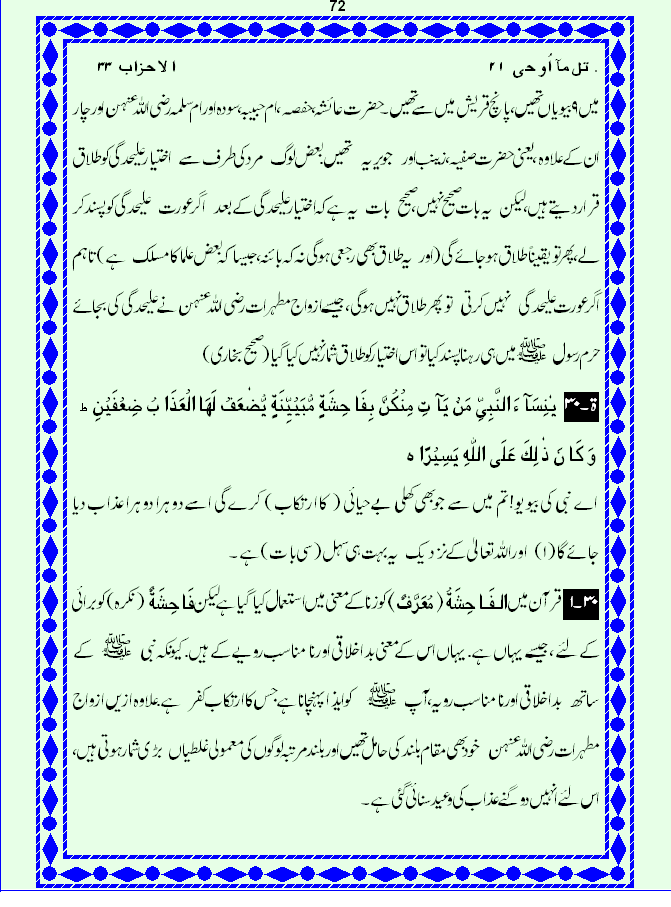 72
تل مآ اُوحی ۲۱ الاحزاب ۳۳
میں ۹ بیویاں تھیں، پانچ قریش میں سے تھیں۔ حضرت عائشہ، حفصہ، ام حبیبہ، سودہ اور ام سلمہ رضی اللہ عنہن اور چار
ان کے علاوہ، یعنی حضرت صفیہ، زینب اور جویریہ تھیں۔ بعض لوگ مرد کی طرف سے اختیار علیحدگی کو طلاق
قرار دیتے ہیں، لیکن یہ بات صحیح نہیں، صحیح بات یہ ہے کہ اختیار علیحدگی کے بعد اگر عورت علیحدگی کو پسند کر
لے، پھر تو یقیناً طلاق ہو جائے گی (اور یہ طلاق بھی رجعی ہوگی نہ کہ بائنہ، جیسا کہ بعض علما کا مسلک ہے) تاہم
اگر عورت علیحدگی نہیں کرتی تو پھر طلاق نہیں ہوگی، جیسے ازواج مطہرات رضی اللہ عنہن نے علیحدگی کی بجائے
حرم رسول ﷺ میں ہی رہنا پسند کیا تو اس اختیار کو طلاق شمار نہیں کیا گیا (صحیح بخاری)
ۃ۔۳۰ یٰنِسَآءَ النَّبِیِّ مَنْ یَّاْتِ مِنْکُنَّ بِفَاحِشَۃٍ مُّبَیِّنَۃٍ یُّضٰعَفْ لَھَا الْعَذَابُ ضِعْفَیْنِ ط
وَکَانَ ذٰلِکَ عَلَی اللّٰہِ یَسِیْرًا ہ
اے نبی کی بیویو! تم میں سے جو بھی کھلی بے حیائی (کا ارتکاب) کرے گی اسے دوہرا دوہرا عذاب دیا
جائے گا (۱) اور اللہ تعالیٰ کے نزدیک یہ بہت ہی سہل (سی بات) ہے۔
۳۰۔۱ قرآن میں الفَاحِشَۃُ (مُعَرَّف) کو زنا کے معنی میں استعمال کیا گیا ہے لیکن فَاحِشَۃٌ (نکرہ) کو برائی
کے لئے، جیسے یہاں ہے۔ یہاں اس کے معنی بد اخلاقی اور نامناسب رویے کے ہیں۔ کیونکہ نبی ﷺ کے
ساتھ بد اخلاقی اور نامناسب رویہ، آپ ﷺ کو ایذا پہنچانا ہے جس کا ارتکاب کفر ہے۔ علاوہ ازیں ازواج
مطہرات رضی اللہ عنہن خود بھی مقام بلند کی حامل تھیں اور بلند مرتبہ لوگوں کی معمولی غلطیاں بڑی شمار ہوتی ہیں،
اس لئے انہیں دوگنے عذاب کی وعید سنائی گئی ہے۔